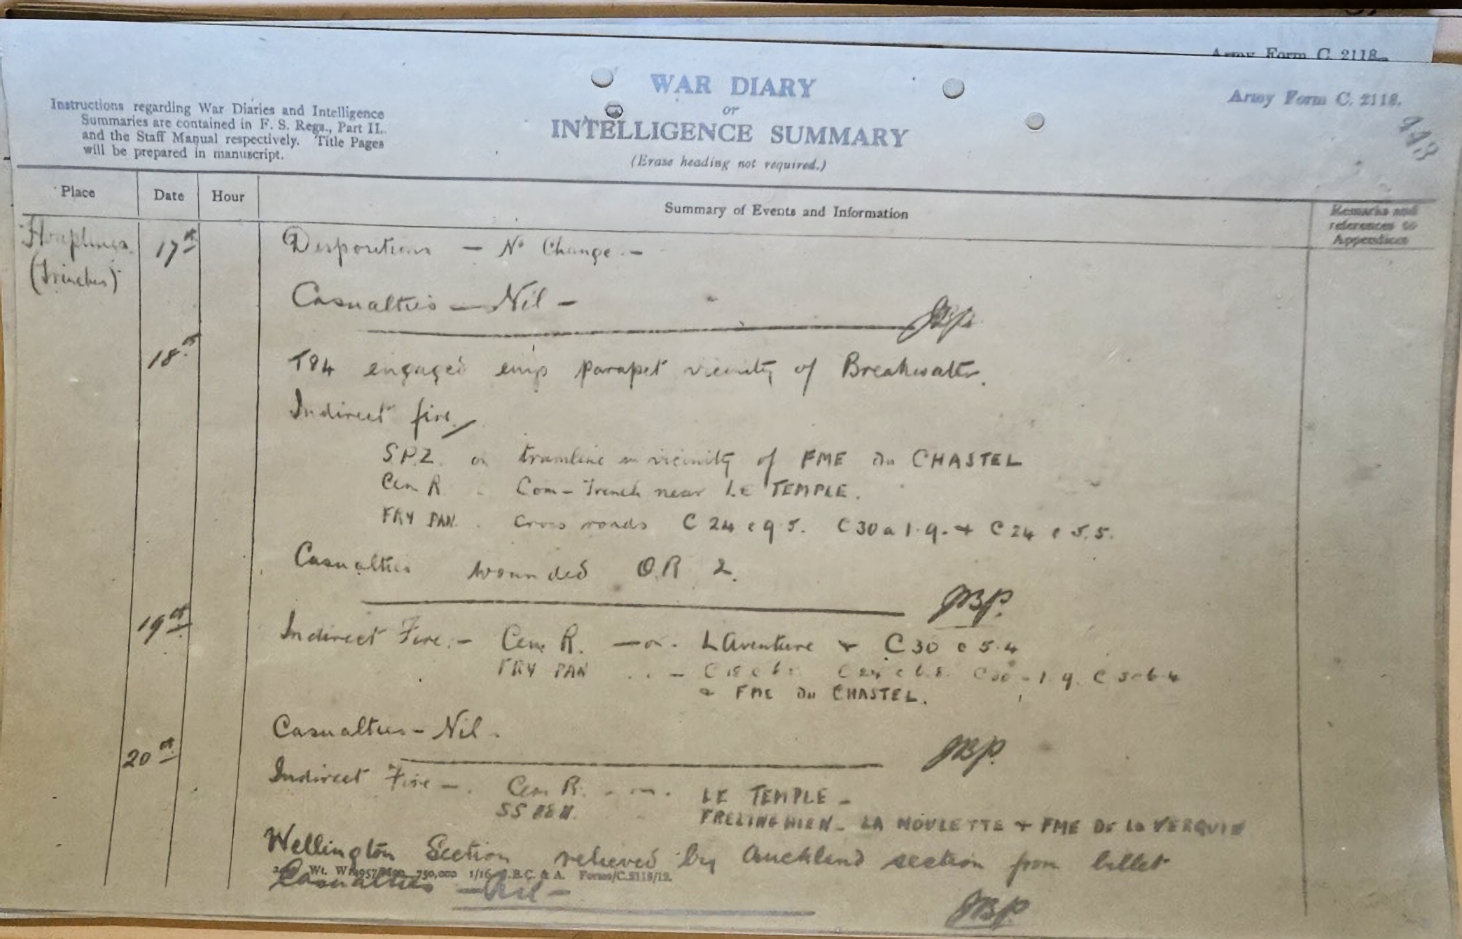 Army Form C. 2118.
WAR DIARY
or
INTELLIGENCE SUMMARY
(Erase heading not required.)
Army Form C. 2118.
443
Instructions regarding War Diaries and Intelligence
Summaries are contained in F. S. Regs., Part II.
and the Staff Manual respectively. Title Pages
will be prepared in manuscript.
Place
Date
Hour
Summary of Events and Information
Remarks and
references to
Appendices
Houplines
(Trenches)
17th
Dispositions - No Change -
Casualties - Nil -
JBP.
18th
T94 engaged emp parapet vicinity of Breakwater.
Indirect fire
S.P.Z. on tramline in vicinity of FME du CHASTEL
Cem R. " Com-Trench near LE TEMPLE.
FRY PAN. " Cross roads C 24 c 9.5. C 30 a 1.9. + C 24 c 5.5.
Casualties wounded O.R 2.
JBP.
19th
Indirect Fire:- Cem R. - on. L'Aventure + C 30 c 5.4
FRY PAN .. - C 30 a 1.9.
+ FME du CHASTEL.
Casualties - Nil.
JBP.
20th
Indirect Fire -. Cem R. - on. LE TEMPLE -
FRELINGHIEN - LA HOULETTE + FME DE La
Wellington Section relieved by Auckland section from billet
750,000 1/16 Forms/C.2118/12.
Casualties - Nil -
JBP.